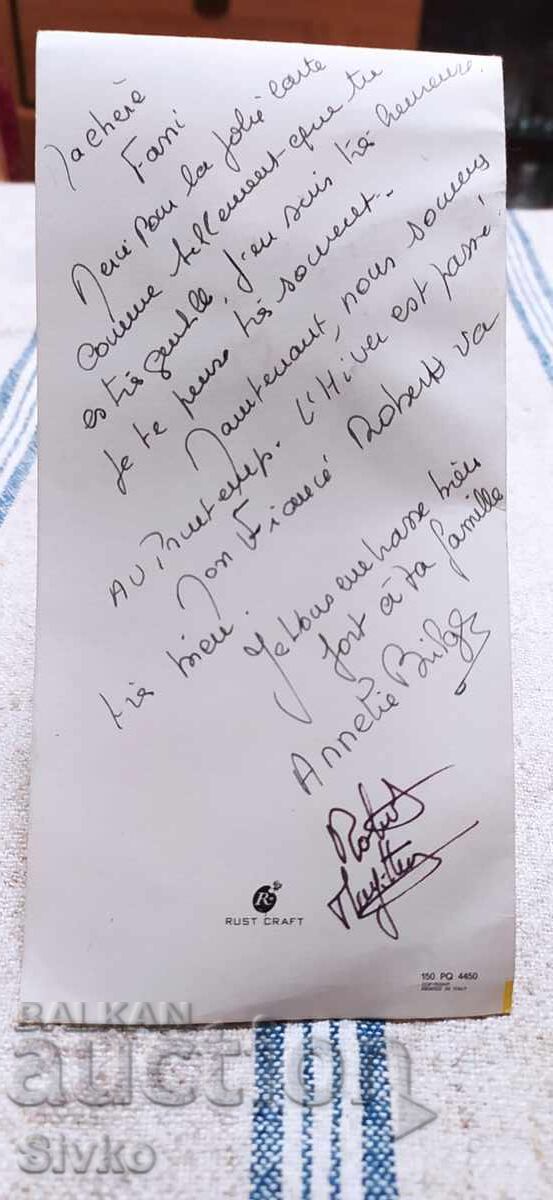 Ma chère
Fani
Merci pour la jolie carte
comme tellement que tu
es très gentille, j'en suis très heureuse.
Je te pense très souvent.
Maintenant, nous sommes
au Printemp. L'Hiver est passé.
Mon Fiancé Robert va
très bien.
Je vous embrasse bien
fort à ta famille
Annetie
Robert
R
RUST CRAFT
150 PQ 4450
COPYRIGHT
PRINTED IN ITALY
BALKAN
auction
Sivko